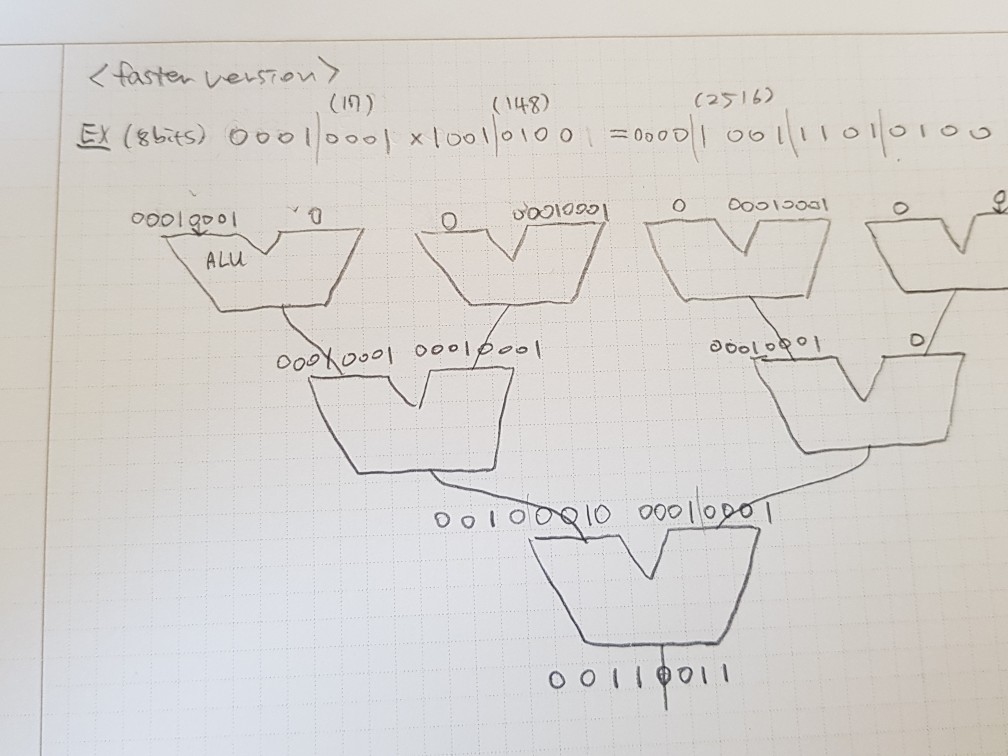 <faster version>
(17) (148) (2516)
EX (8bits) 0001|0001 x 1001|0100 | = 0000|1001|1101|0100
00010001 0 0 00010001 0 00010001 0 0
ALU
00010001 00010001 00010001 0
00100010 0001|0001
00110011